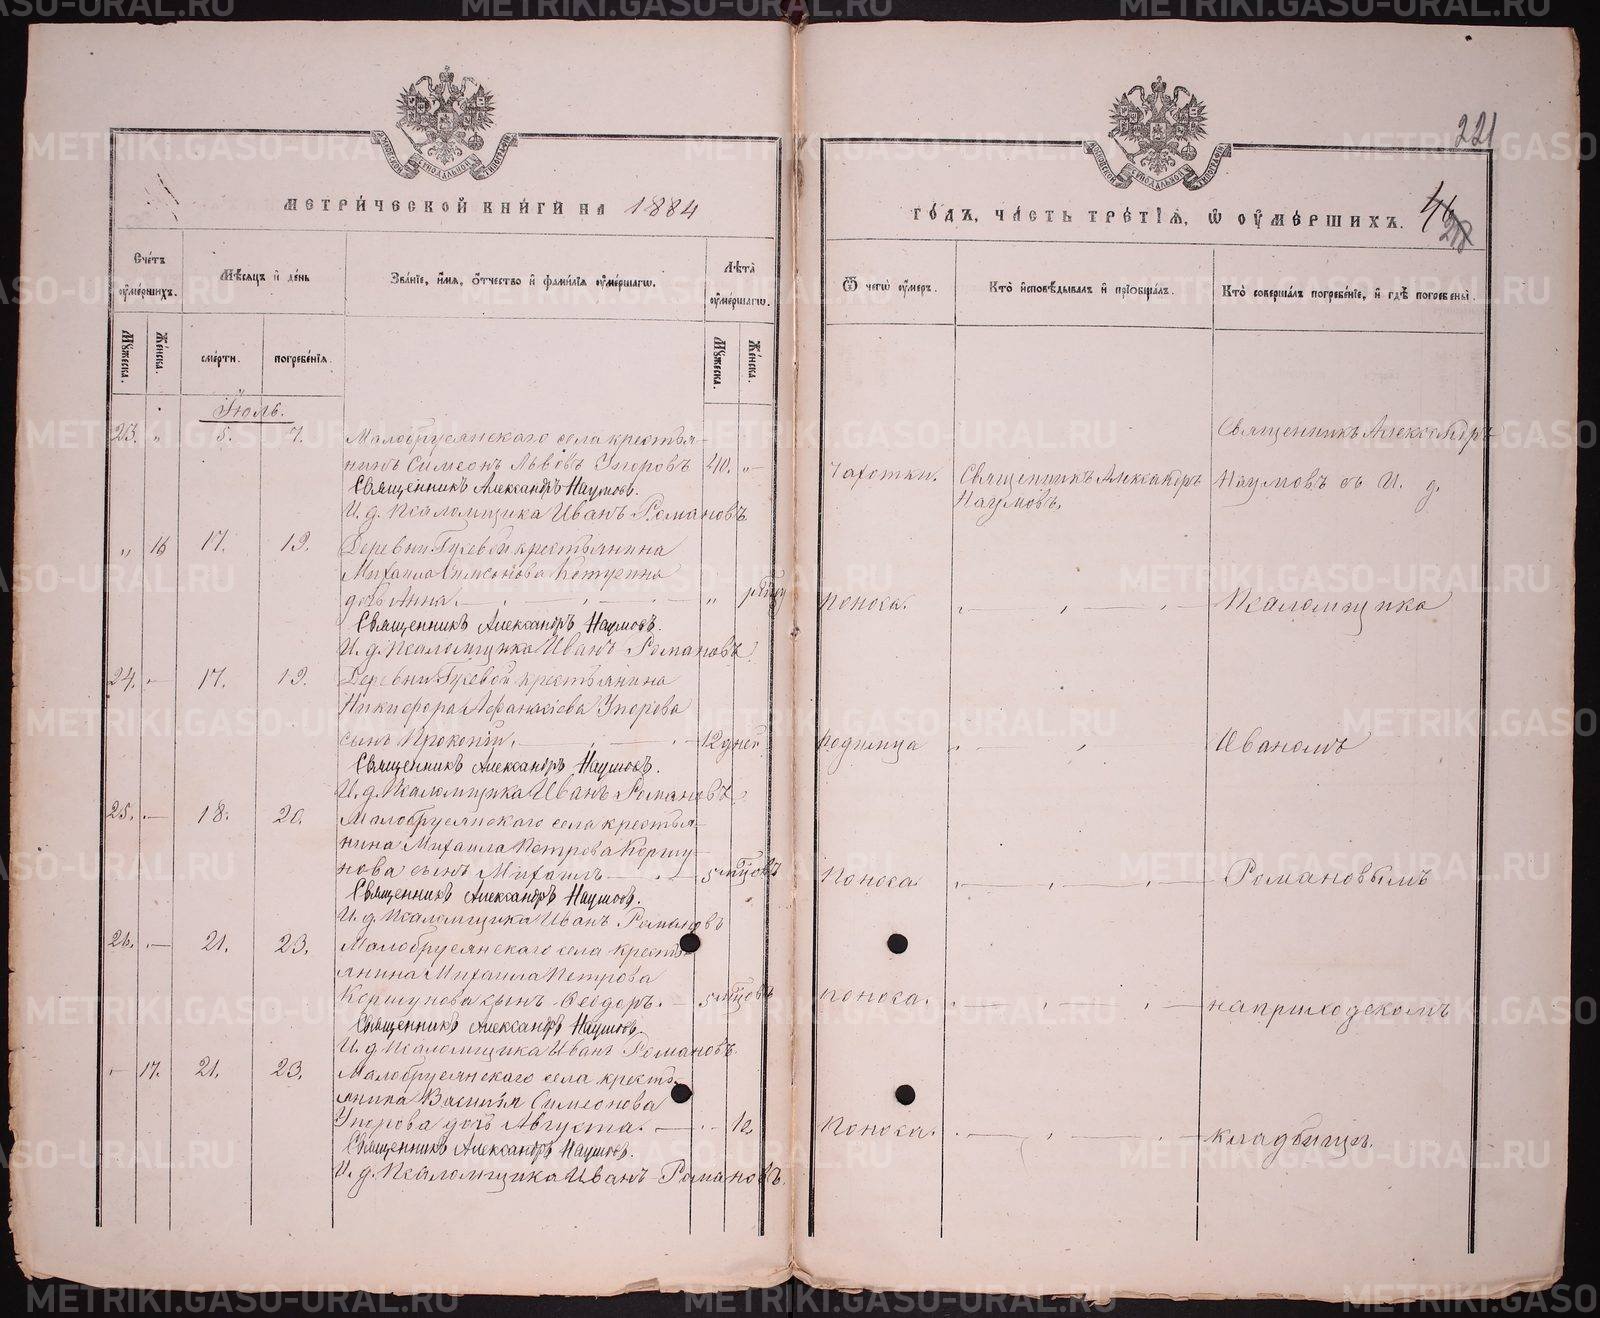 221
МЕТРИ́ЧЕСКОЙ КНИ́ГИ НА 1884
ГО́ДЪ, ЧА́СТЬ ТРЕ́ТІѦ, Ѡ ОУМЕ́РШИХЪ.
46
218
Сче́тъ оумéршихъ.
Мѣ́сяцъ и҆ де́нь
Зва́нїе, и҆́мѧ, ѻ҆́тчество и҆ фами́лїѧ оумéршагѡ.
Лѣ́та оумéршагѡ.
Ѿ чегѡ̀ оу́меръ.
Кто̀ и҆сповѣ́дывалъ и҆ прїѻбща́лъ.
Кто̀ соверша́лъ погребе́нїе, и҆ гдѣ̀ погребены̀.
Мꙋ́жеска.
Же́нска.
сме́рти.
погребе́нїѧ.
Мꙋ́жеска.
Же́нска.
Іюль.
23. " 5. 7. Малобрусянскаго села крестья-
нинъ Симеонъ Львовъ Упоровъ 40. "
Священникъ Александръ Наумовъ.
И. д. Псаломщика Иванъ Романовъ
Чахотки. Священникъ Александръ
Наумовъ.
Священникъ Александръ
Наумовъ съ И. д.
" 16 17. 19. Деревни Гусевой крестьянина
Михаила Симеонова
дочь Анна. "
Священникъ Александръ Наумовъ.
И. д. Псаломщика Иванъ Романовъ.
поноса. Псаломщика
24. - 17. 19. Деревни Гусевой крестьянина
Никифора Афанасіева Упорова
сынъ Прокопій. 12 дней
Священникъ Александръ Наумовъ.
И. д. Псаломщика Иванъ Романовъ.
родимца Иваномъ
25. - 18. 20. Малобрусянскаго села крестья-
нина Михаила Петрова Коршу-
нова сынъ Михаилъ 5 мѣсцовъ
Священникъ Александръ Наумовъ.
И. д. Псаломщика Иванъ Романовъ
поноса. Романовымъ
26. - 21. 23. Малобрусянскаго села кресть-
янина Михаила Петрова
Коршунова сынъ Ѳеодоръ. 5 мѣсцовъ
Священникъ Александръ Наумовъ.
И. д. Псаломщика Иванъ Романовъ.
поноса. на приходскомъ
- 17. 21. 23. Малобрусянскаго села кресть-
янина Василія Симеонова
Упорова дочь Августа.
Священникъ Александръ Наумовъ.
И. д. Псаломщика Иванъ Романовъ.
поноса. кладбищѣ.
METRIKI.GASO-URAL.RU